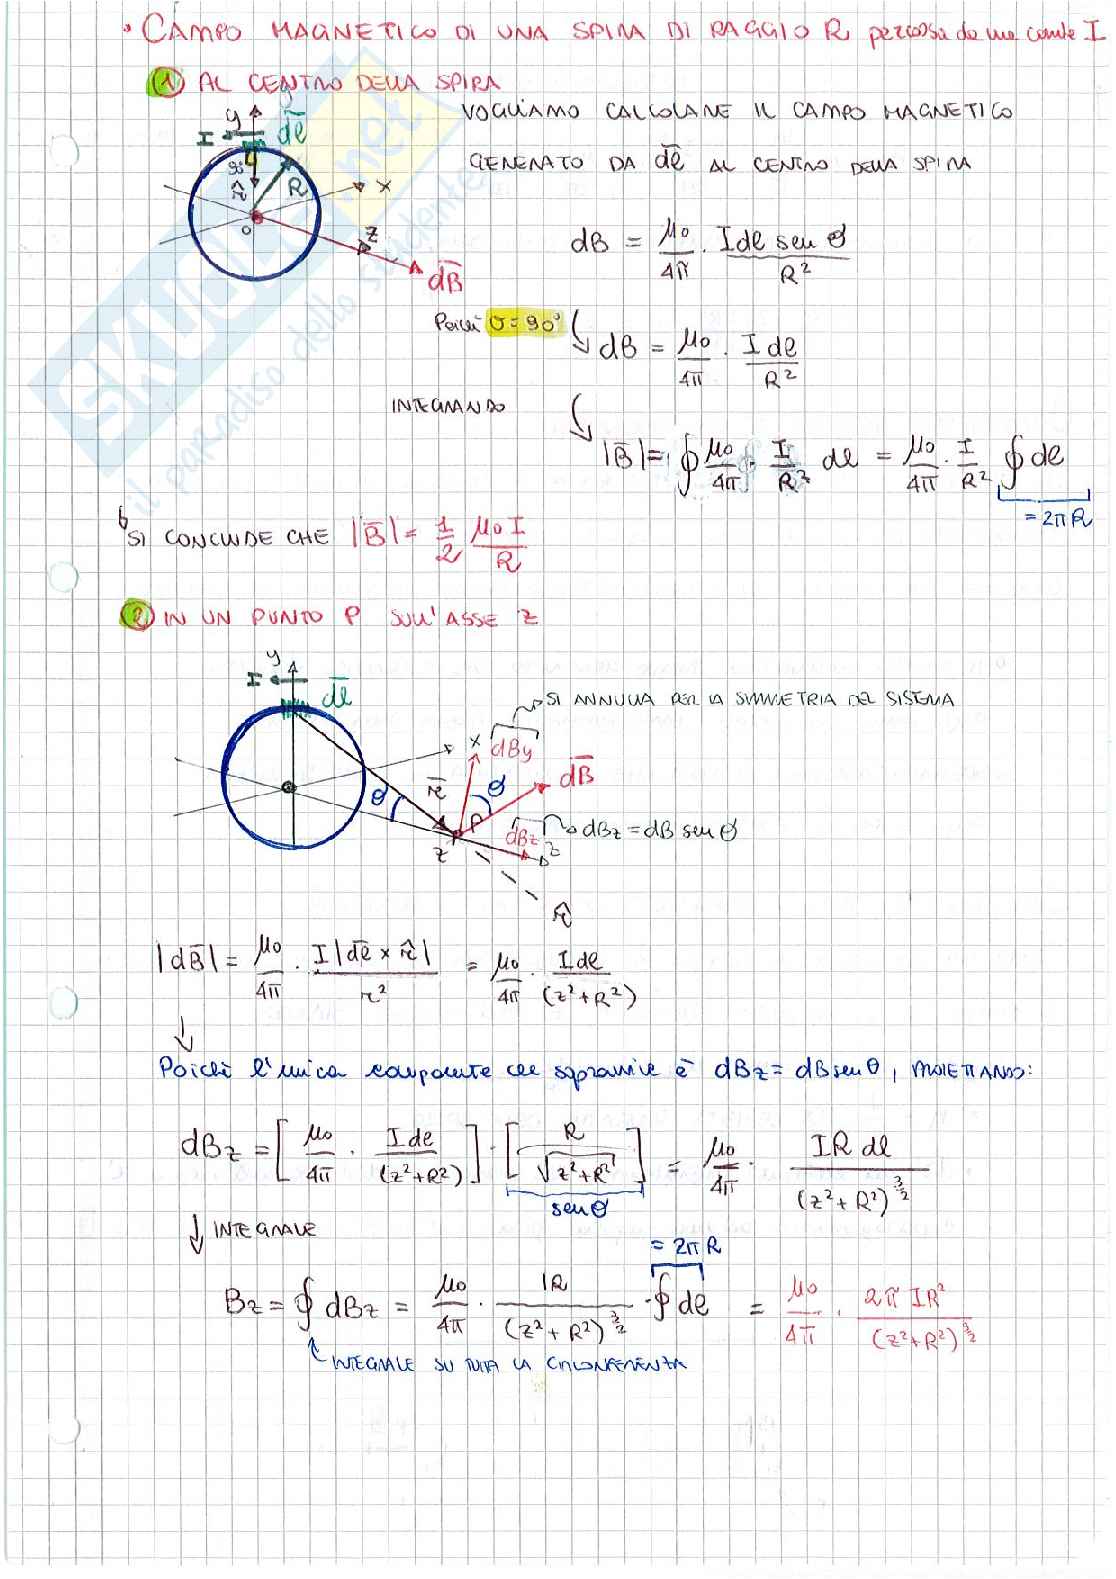 • CAMPO MAGNETICO DI UNA SPIRA DI RAGGIO R percorsa da una corrente I
① AL CENTRO DELLA SPIRA
VOGLIAMO CALCOLARE IL CAMPO MAGNETICO
GENERATO DA dl̅ AL CENTRO DELLA SPIRA
y I dl̅ R r̂ x 0 z dB̅
dB = μ₀/4π · I dl sen θ / R²
Poiché θ = 90°
dB = μ₀/4π · I dl / R²
INTEGRANDO
|B̅| = ∮ μ₀/4π · I/R² dl = μ₀/4π · I/R² ∮ dl
= 2πR
SI CONCLUDE CHE |B̅| = 1/2 μ₀I/R
② IN UN PUNTO P SULL'ASSE Z
y I dl̅
SI ANNULLA PER LA SIMMETRIA DEL SISTEMA
x dBy
r̅ θ θ dB̅
P dBz dBz = dB sen θ
z z
r̂
|dB̅| = μ₀/4π · I|dl̅ × r̂| / r² = μ₀/4π · I dl / (z² + R²)
Poiché l'unica componente che sopravvive è dBz = dB sen θ, PROIETTANDO:
dBz = [μ₀/4π · I dl / (z² + R²)] · [R / √(z² + R²)] = μ₀/4π · I R dl / (z² + R²)^(3/2)
sen θ
INTEGRALE
= 2πR
Bz = ∮ dBz = μ₀/4π · IR / (z² + R²)^(3/2) · ∮ dl = μ₀/4π · 2π I R² / (z² + R²)^(3/2)
INTEGRALE SU TUTTA LA CIRCONFERENZA
SKUOLA.net
il paradiso dello studente